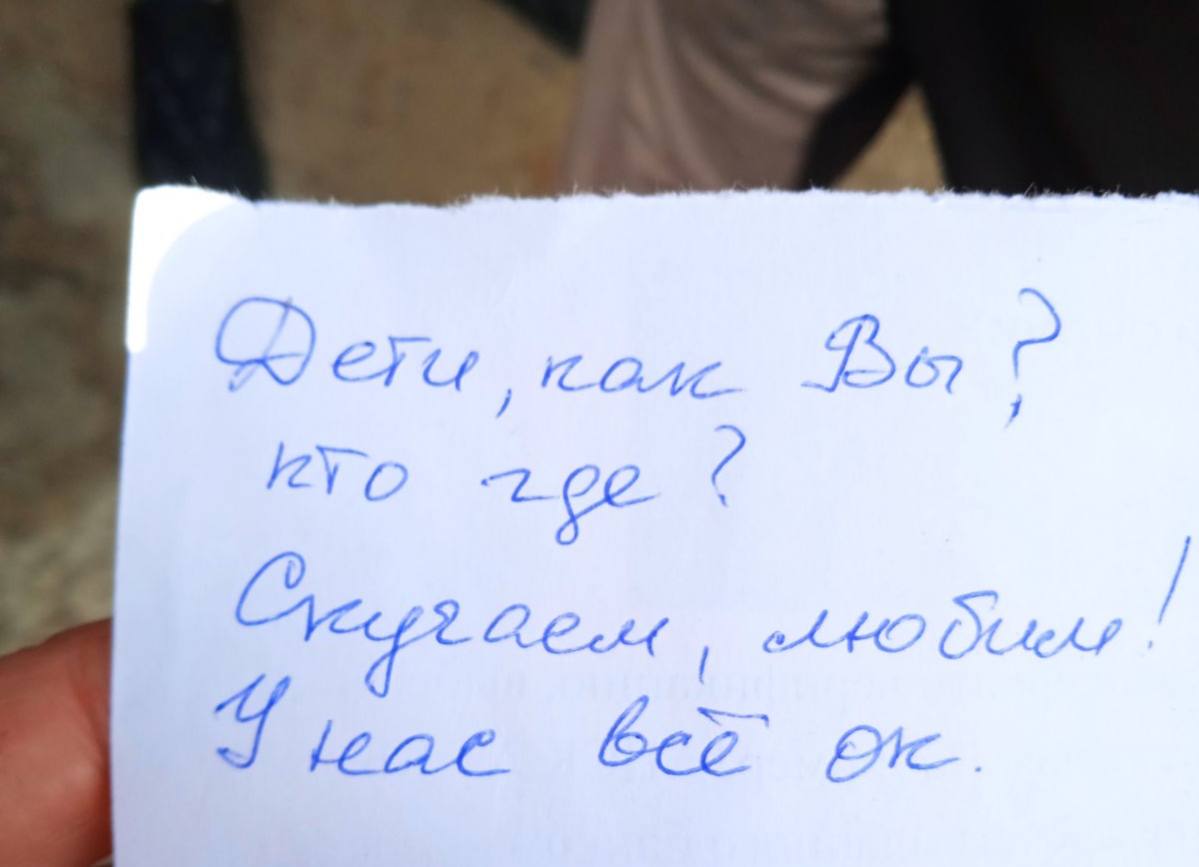 Дети, как Вы?
кто где?
Скучаем, любим!
У нас всё ок.